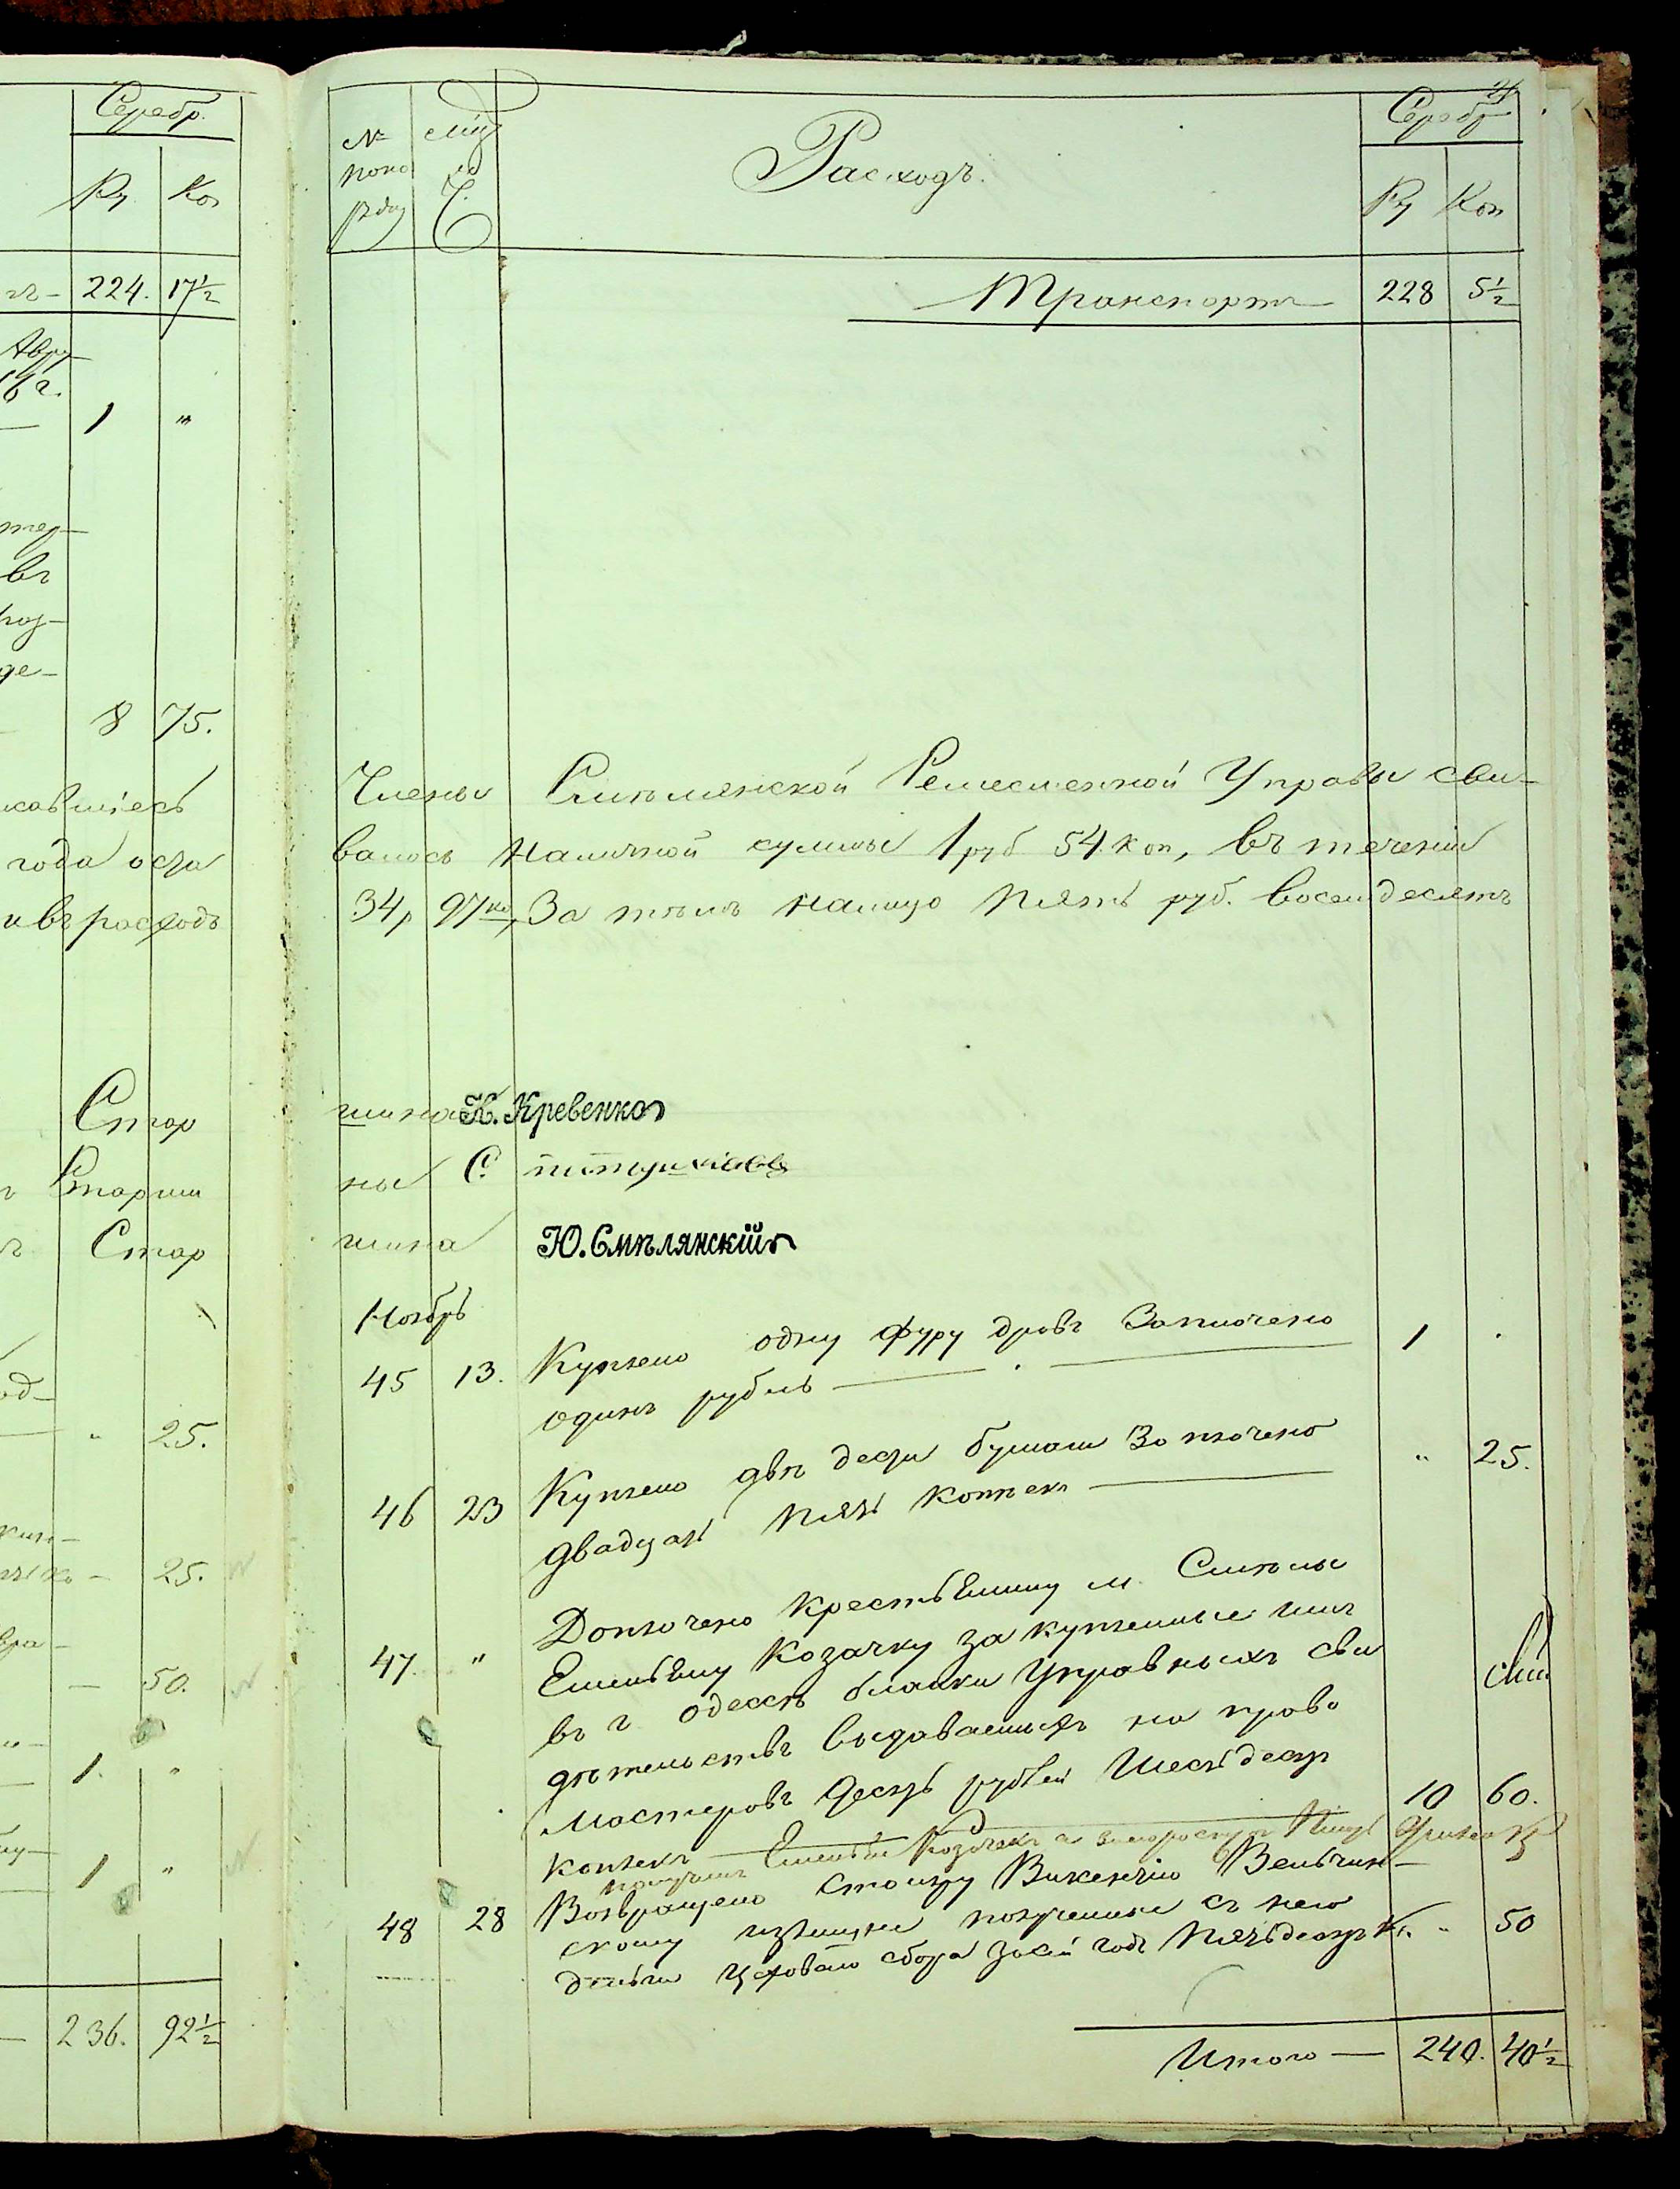 Серебр.
Ру Коп
224. 17½
1 "
въ
де-
8 75.
кавшіесь
года оста
и въ расходъ
Стар
Старши
Стар
25.
25.
50.
1. "
1 "
236. 92½
№ поряд
Расходъ.
Серебр
Ру Коп
Транспортъ 228 5½
Члены Смѣлянской Ремесленной Управы сви-
валось Наличной суммы 1 руб 54 коп, въ теченіи
34, 97 ко, За тѣмъ налицо Пять руб. восемдесятъ
шина К. Кревенко
ны С.
шина Ю. Смѣлянскій
Ноябрь
45 13. Куплено одну фуру дровъ Заплочено
одинъ рубль 1
46 23 Куплено двѣ дести бумаги Заплочено
двадцать пять копѣекъ " 25.
47. " Доплочено Крестьянину м. Смѣлы
Емельяну Козачку за купленные имъ
въ г. Одессѣ бланки Управныхъ сви
дѣтельствъ выдаваемыхъ на право
Мастеровъ Десять рублей Шестьдесят
копѣекъ 10 60.
получилъ Емельян Козачекъ а
48 28 Возвращено столяру Викентію Вельчин-
скому излишне полученные съ него
деньги Цеховаго сбора за сей годъ Пятьдесят К. " 50
Итого — 240. 40½